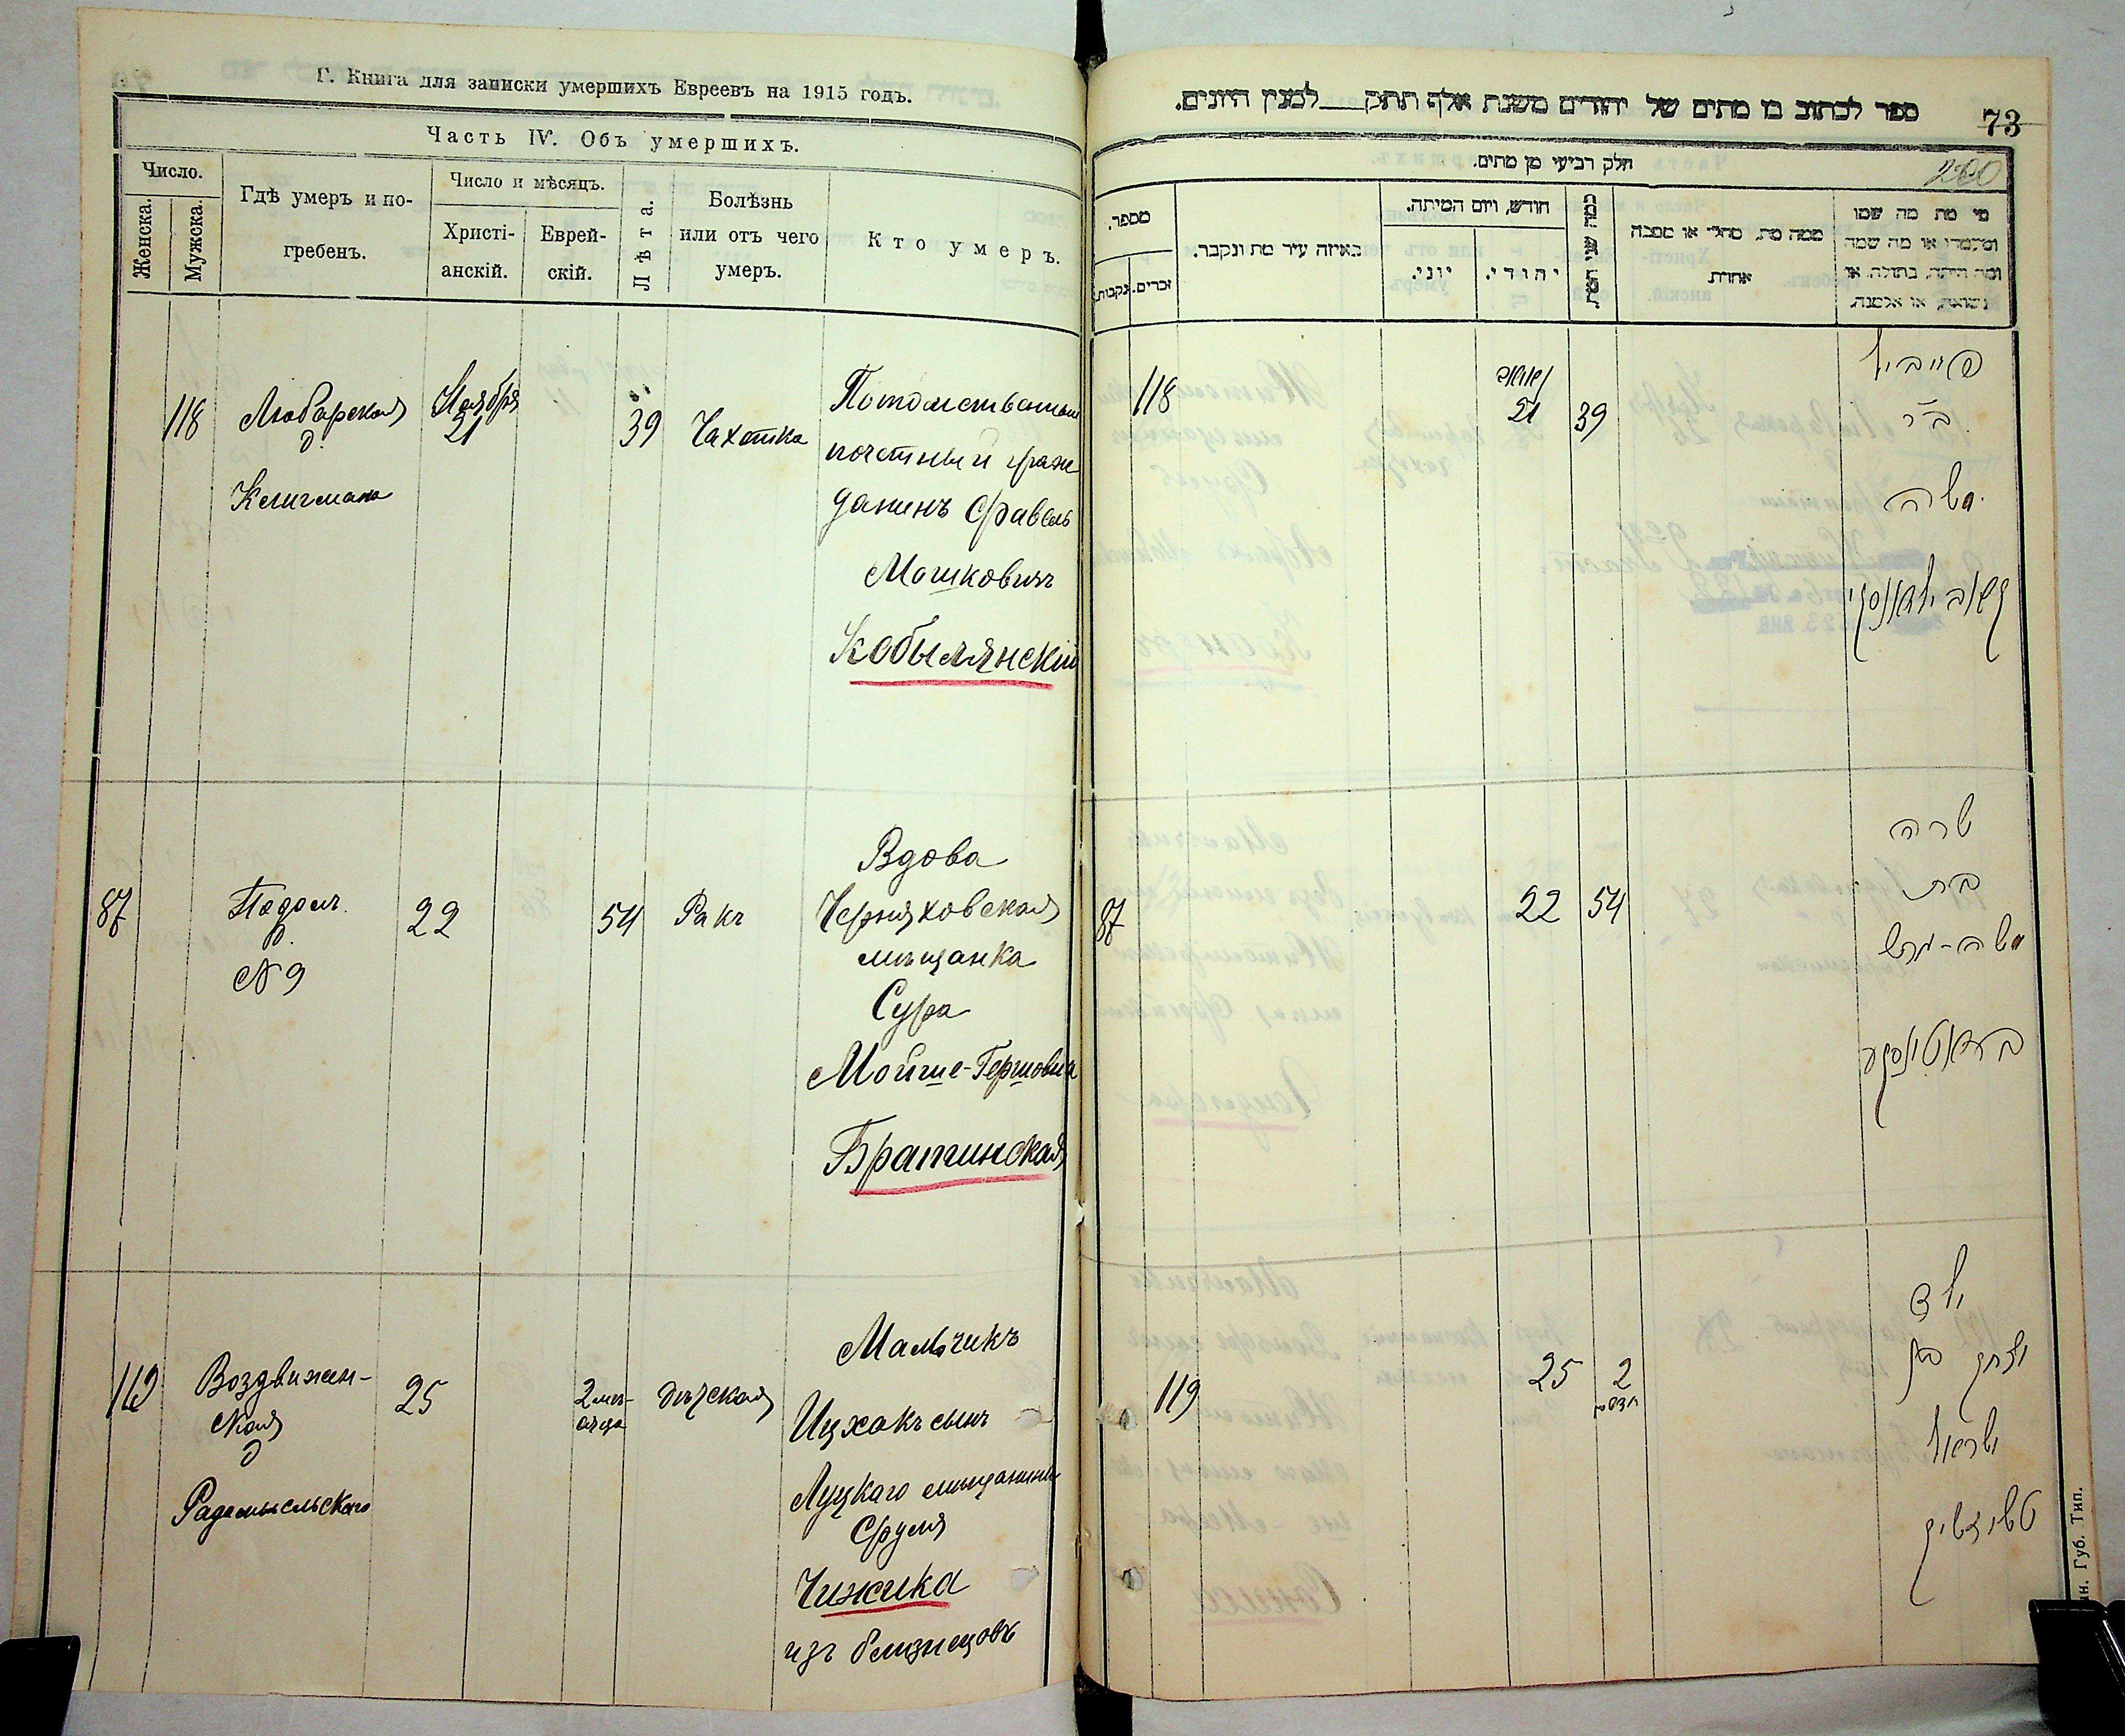 Г. Книга для записки умершихъ Евреевъ на 1915 годъ.
Часть IV. Объ умершихъ.
Число.
Женска.
Мужска.
Гдѣ умеръ и по-
гребенъ.
Число и мѣсяцъ.
Христі-
анскій.
Еврей-
скій.
Лѣта.
Болѣзнь
или отъ чего
умеръ.
Кто умеръ.
118
Любарская
д.
Келигмана
Ноября
21
39
Чахотка
Потомственный
почетный граж
данинъ Сравель
Мошковичъ
Кобылянскій
87
Подол.
р.
N 9
22
54
Ракъ
Вдова
Черняховская
мѣщанка
Сура
Мойше-Гершовна
Братчинская
119
Воздвижен-
ская
д
Радомысльскаго
25
2 мѣ-
сяца
дѣтская
Мальчикъ
Ицхокъ сынъ
Луцкаго мѣщанина
Сруля
Чижика
изъ близнецовъ
ספר לכתוב בו מתים של יהודים משנת אלף תתק לטנין היונים.
73
260
חלק רביעי מן מתים.
מספר.
זכרים.
נקבות.
באיזה עיר מת ונקבר.
חודש, ויום המיתה.
יוני.
יהודי.
כמה שני המת
ממה מת, מחלי או מסבה
אחרת
מי מת מה שמו
ומשמרו או מה שמה
ומה היתה, בתולה, או
נשואה, או אלמנה.
118
21
39
ב"ר
משה
קאבילאנסקי
87
22
54
שרה
בת
משה-הרש
119
25
2
חדשים
ילד
יצחק בן
ישראל
טשיזשיק
ин. Губ. Тип.